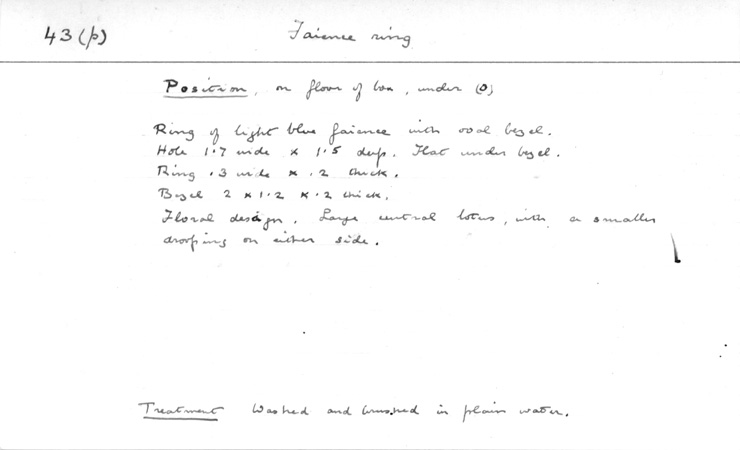 43(p) Faience ring
Position, on floor of box, under (o)
Ring of light blue faience with oval bezel.
Hole 1.7 wide x 1.5 deep. Flat under bezel.
Ring .3 wide x .2 thick.
Bezel 2 x 1.2 x .2 thick.
Floral design. Large central lotus, with a smaller
drooping on either side.
Treatment Washed and brushed in plain water.